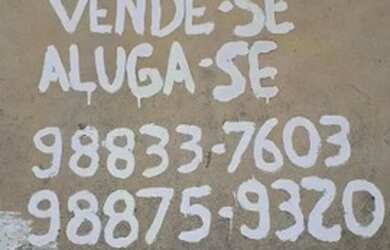 VENDE-SE
ALUGA-SE
98833-7603
98875-9320